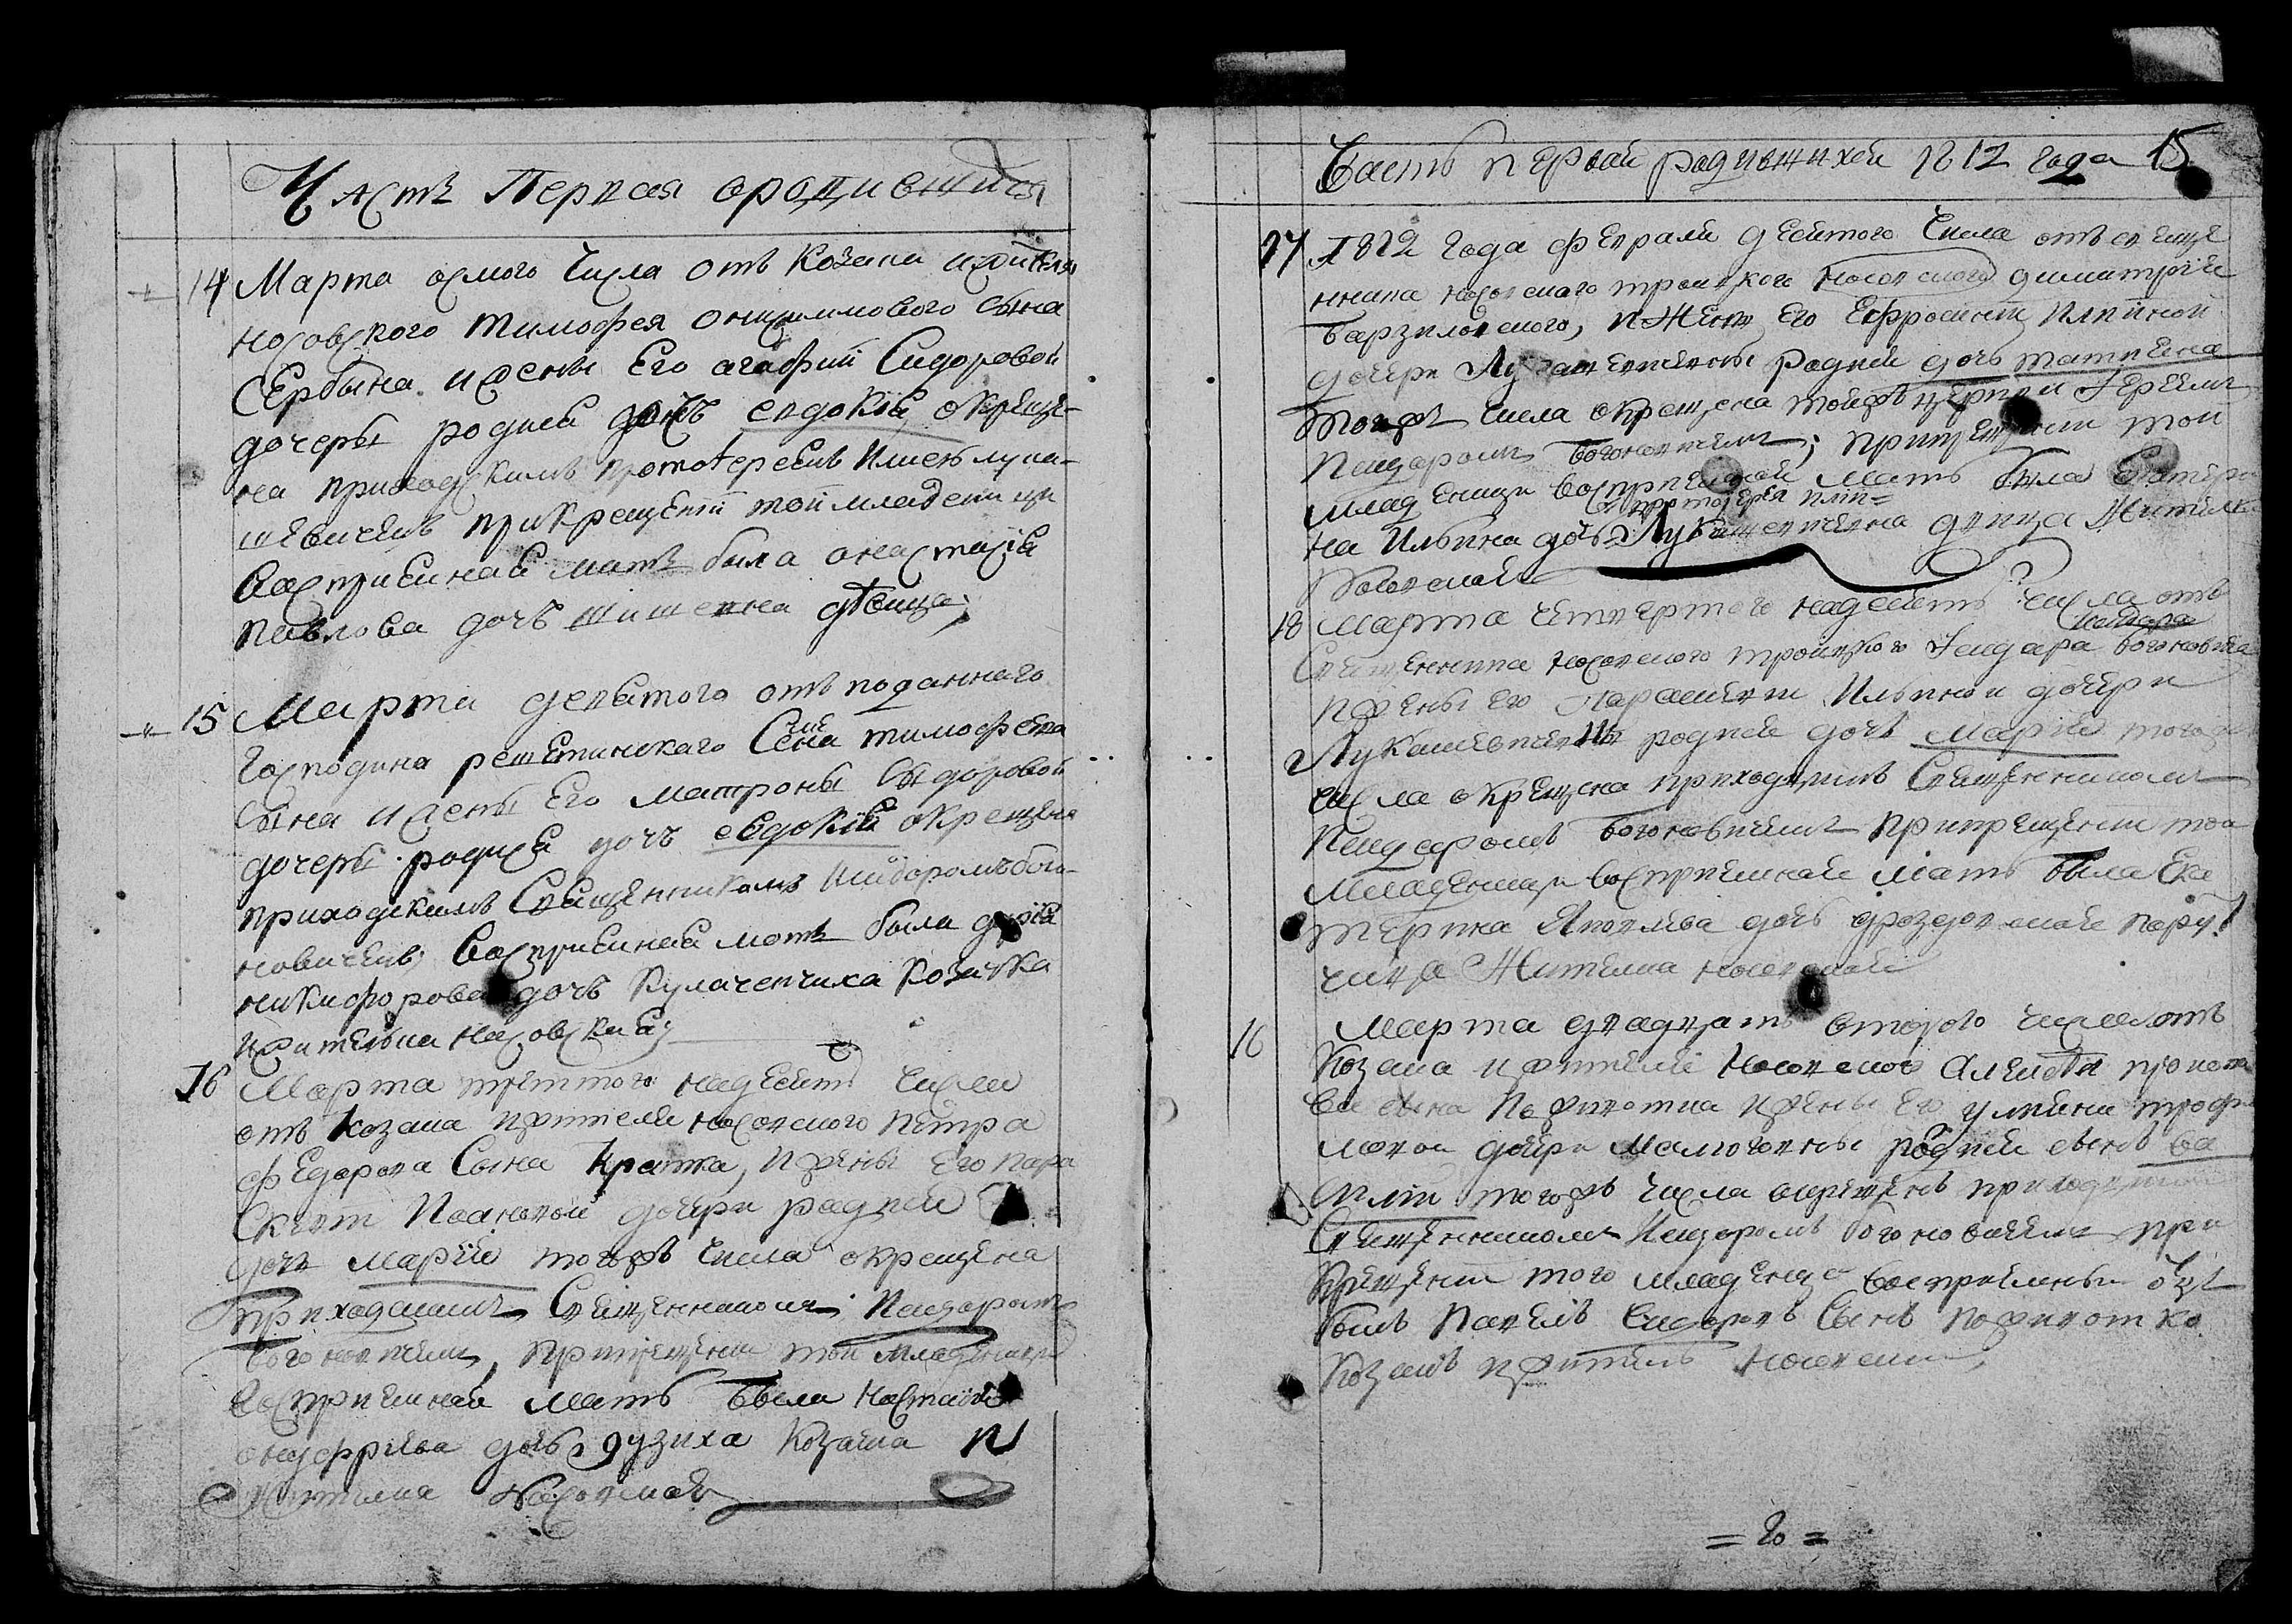 Часть Первая ородившихся
14 Марта осмого Числа отъ козака ижителя
носовского тимофея онисимового сына
Сербына ижены Его агафии Сидоровой
дочеры родися дочъ евдокія окреще-
на приходскимъ протоиереемъ Илиею лука-
шевичемъ прикрещеніи той младеницы
Восприемная мать была анастасія
Павлова дочъ шишевна дѣвица;
15 Марта девятого отъ поданнаго
Господина решетинскаго Сены тимофеева
Сына ижены Его матроны Сыдоровой
дочеры родися дочъ евдокія окрещена
приходскимъ Священникомъ Исидоромъ бого-
новичемъ; Восприемная мать была дарія
никифорова дочъ Кулаченчиха козачка
ижителька носовская;
16 Марта третого надесять числа
отъ козака ижителя носовского петра
федорова Сына Кратка, ижены Его пара
Скевіи Ивановой дочери родися
дочь марія тогожъ числа окрещена
приходскимъ Священникомъ Исидоромъ
богоновичемъ, прикрещении той младеницы
восприемная мать была настасія
онуфріева дочь дузиха козачка и
жителка носовская
Часть первая родившихся 1812 года 15
17 1812 года февраля десятого Числа отъ свяще
нника носовского троицкого носовского димитрія
барзиловского, и Жены Его Ефросиніи Иліиной
дочери Лукашевичевны родися дочь татияна
Тогожъ числа окрещена тойжъ церкви Іереемъ
Исидоромъ богоновичемъ; прикрещении той
младеницы восприемная мать была Екатери
протоіерея иліи=
на Ильина дочь Лукашевичевна девица Жителка
Носовская
18 марта четвертого надесять числа отъ
исидора
Священника носовского троицкого Исидора богоновича
ижены его Параскевии Ильиной дочери
Лукашевичевны родися дочь марія тогожъ
числа окрещена приходскимъ Священникомъ
Исидоромъ богоновичемъ прикрещении той
младеницы восприемная мать была Ека
терина Яковлева дочь дроздовская пору!
чица Жителка носовская
16 марта двадцать второго числа отъ
козака ижителя носовского Алексѣя
сына ижены его улияни троф
имовой дочери родися сынъ ва
силій тогожъ числа окрещенъ приходскимъ
Священникомъ Исидоромъ богоновичемъ при
крещении того младенца восприемный оце
былъ Павелъ Сидоровъ Сынъ
козакъ ижитель носовский
= 20 =